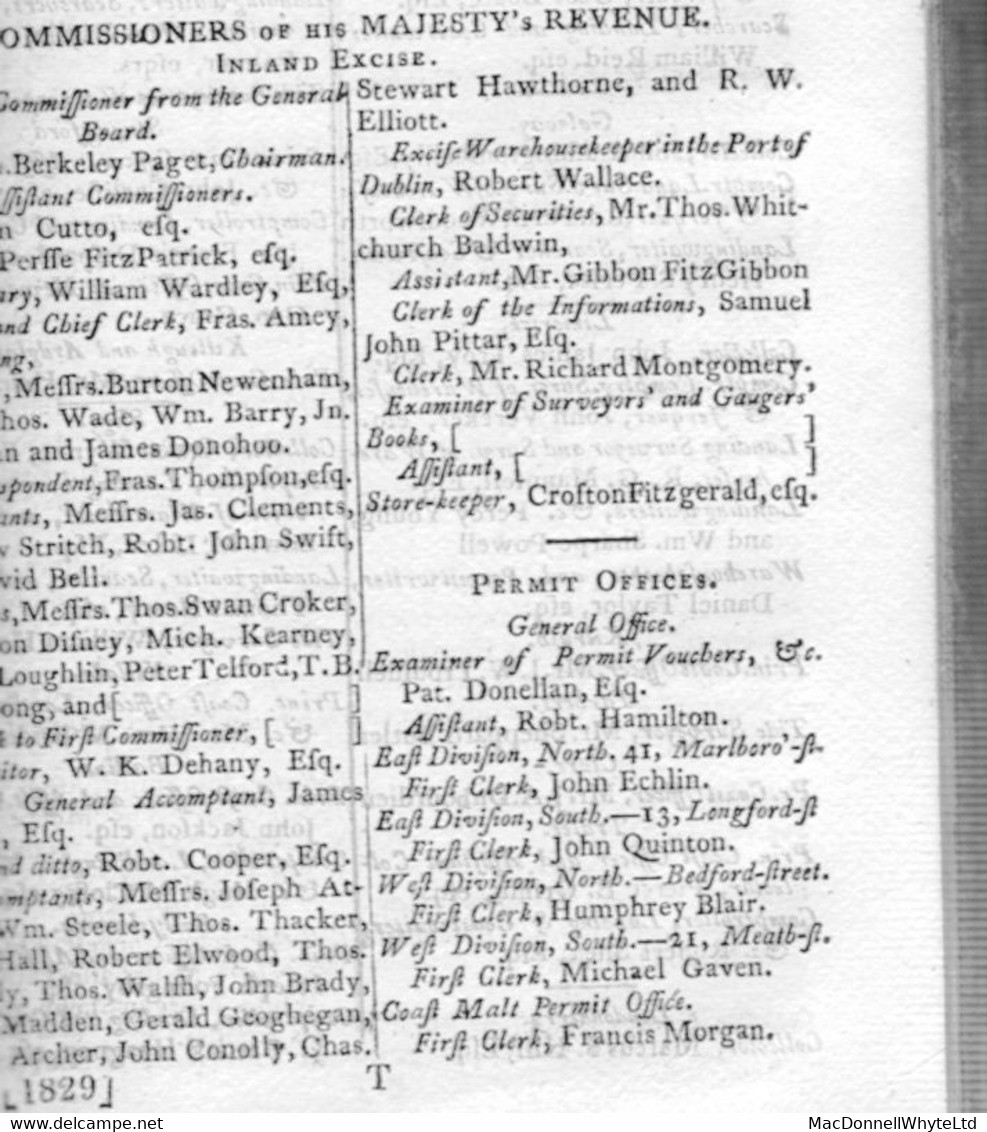 OMMISSIONERS OF HIS MAJESTY's REVENUE.
INLAND EXCISE.
Commiſſioner from the General
Board.
.Berkeley Paget, Chairman.
ſſiſtant Commiſſioners.
n Cutto, eſq.
Perſſe FitzPatrick, eſq.
ary, William Wardley, Eſq,
and Chief Clerk, Fras. Amey,
ng,
, Meſſrs. Burton Newenham,
hos. Wade, Wm. Barry, Jn.
an and James Donohoo.
spondent, Fras. Thompſon, eſq.
ants, Meſſrs. Jas. Clements,
w Stritch, Robt. John Swift,
vid Bell.
s, Meſſrs. Thos. Swan Croker,
on Diſney, Mich. Kearney,
Loughlin, Peter Telford, T. B.
ong, and [ ]
t to Firſt Commiſſioner, [ ]
itor, W. K. Dehany, Eſq.
General Accomptant, James
, Eſq.
nd ditto, Robt. Cooper, Eſq.
omptants, Meſſrs. Joſeph At-
Wm. Steele, Thos. Thacker,
Hall, Robert Elwood, Thos.
ly, Thos. Walſh, John Brady,
Madden, Gerald Geoghegan,
Archer, John Conolly, Chas.
[1829]
Stewart Hawthorne, and R. W.
Elliott.
Exciſe Warehousekeeper in the Port of
Dublin, Robert Wallace.
Clerk of Securities, Mr. Thos. Whit-
church Baldwin,
Assistant, Mr. Gibbon FitzGibbon
Clerk of the Informations, Samuel
John Pittar, Eſq.
Clerk, Mr. Richard Montgomery.
Examiner of Surveyors' and Gaugers'
Books, [ ]
Aſſiſtant, [ ]
Store-keeper, Crofton Fitzgerald, eſq.
PERMIT OFFICES.
General Office.
Examiner of Permit Vouchers, &c.
Pat. Donellan, Eſq.
Aſſiſtant, Robt. Hamilton.
Eaſt Diviſion, North. 41, Marlboro'-ſt.
Firſt Clerk, John Echlin.
Eaſt Diviſion, South.—13, Longford-ſt
Firſt Clerk, John Quinton.
Weſt Diviſion, North.—Bedford-ſtreet.
Firſt Clerk, Humphrey Blair.
Weſt Diviſion, South.—21, Meath-ſt.
Firſt Clerk, Michael Gaven.
Coaſt Malt Permit Office.
Firſt Clerk, Francis Morgan.
T
www.delcampe.net
MacDonnellWhyteLtd